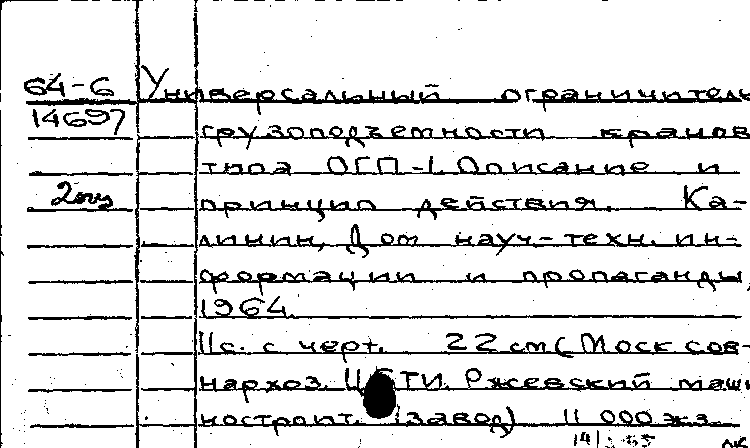 64-6 Универсальный ограничитель
14697 грузоподъемности кранов
типа ОГП-1. Описание и
принцип действия. Ка-
линин, Дом науч-техн. ин-
формации и пропаганды,
1964.
11с. с черт. 22 см (Моск сов-
нархоз. ЦБТИ. Ржевский маши
ностроит. завод) 11 000 экз.